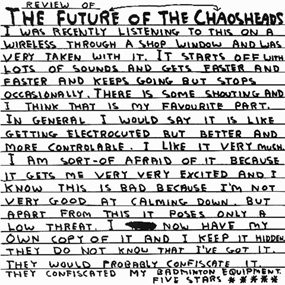 REVIEW OF
THE FUTURE OF THE CHAOSHEADS
I WAS RECENTLY LISTENING TO THIS ON A
WIRELESS THROUGH A SHOP WINDOW AND WAS
VERY TAKEN WITH IT. IT STARTS OFF WITH
LOTS OF SOUNDS AND GETS FASTER AND
FASTER AND KEEPS GOING BUT STOPS
OCCASIONALLY. THERE IS SOME SHOUTING AND
I THINK THAT IS MY FAVOURITE PART.
IN GENERAL I WOULD SAY IT IS LIKE
GETTING ELECTROCUTED BUT BETTER AND
MORE CONTROLABLE. I LIKE IT VERY MUCH.
I AM SORT-OF AFRAID OF IT BECAUSE
IT GETS ME VERY VERY EXCITED AND I
KNOW THIS IS BAD BECAUSE I'M NOT
VERY GOOD AT CALMING DOWN. BUT
APART FROM THIS IT POSES ONLY A
LOW THREAT. I NOW HAVE MY
OWN COPY OF IT AND I KEEP IT HIDDEN.
THEY DO NOT KNOW THAT I'VE GOT IT.
THEY WOULD PROBABLY CONFISCATE IT.
THEY CONFISCATED MY BADMINTON EQUIPMENT.
FIVE STARS *****